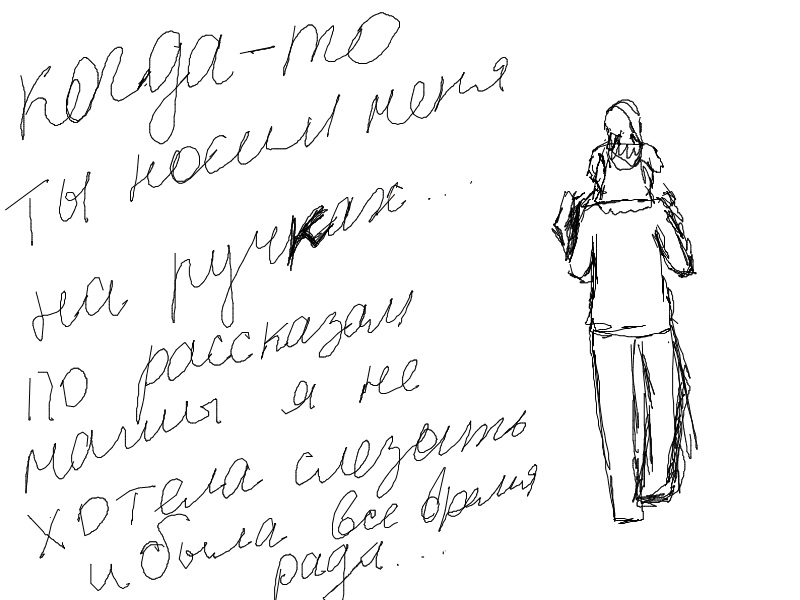 когда-то
ты носил меня
на ручках...
по рассказам
мамы я не
хотела слезать
и была все время
рада...